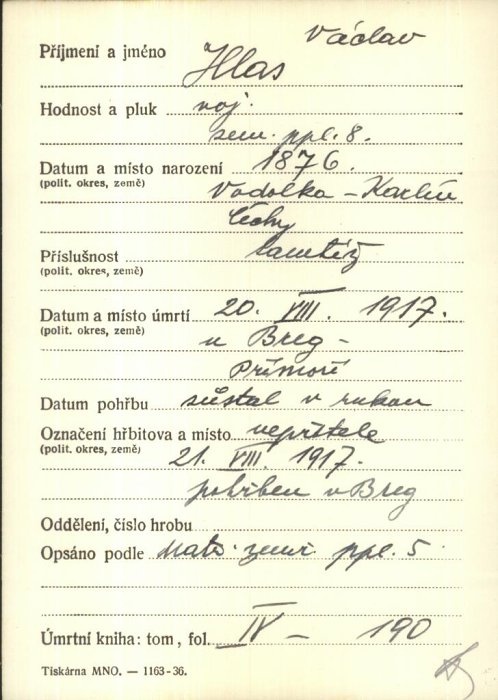 Václav
Příjmení a jméno Hlas
Hodnost a pluk voj.
zem. ppl. 8.
Datum a místo narození 1876.
(polit. okres, země) Vodolka - Karlín
Čechy
Příslušnost tamtéž
(polit. okres, země)
Datum a místo úmrtí 20. VIII. 1917.
(polit. okres, země) u Breg -
Přímoří
Datum pohřbu zůstal v rukou
Označení hřbitova a místo nepřítele
(polit. okres, země) 21. VIII. 1917.
pohřben v Breg
Oddělení, číslo hrobu
Opsáno podle Matr. zemř. ppl. 5
Úmrtní kniha: tom, fol. IV - 190
Tiskárna MNO. — 1163-36.